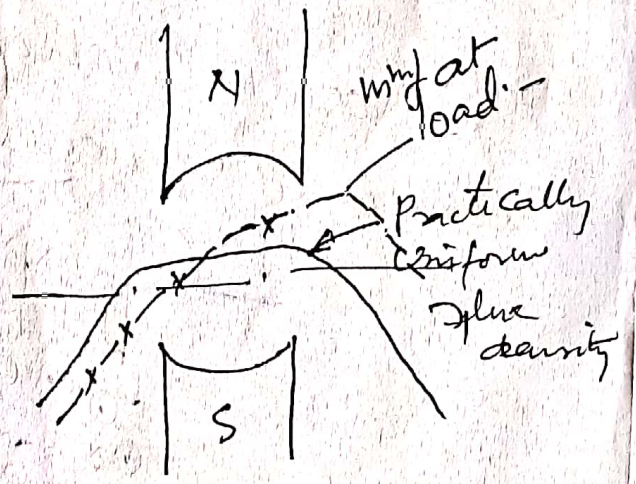 N
mmf at
load.-
Practically
Uniform
flux
density
S